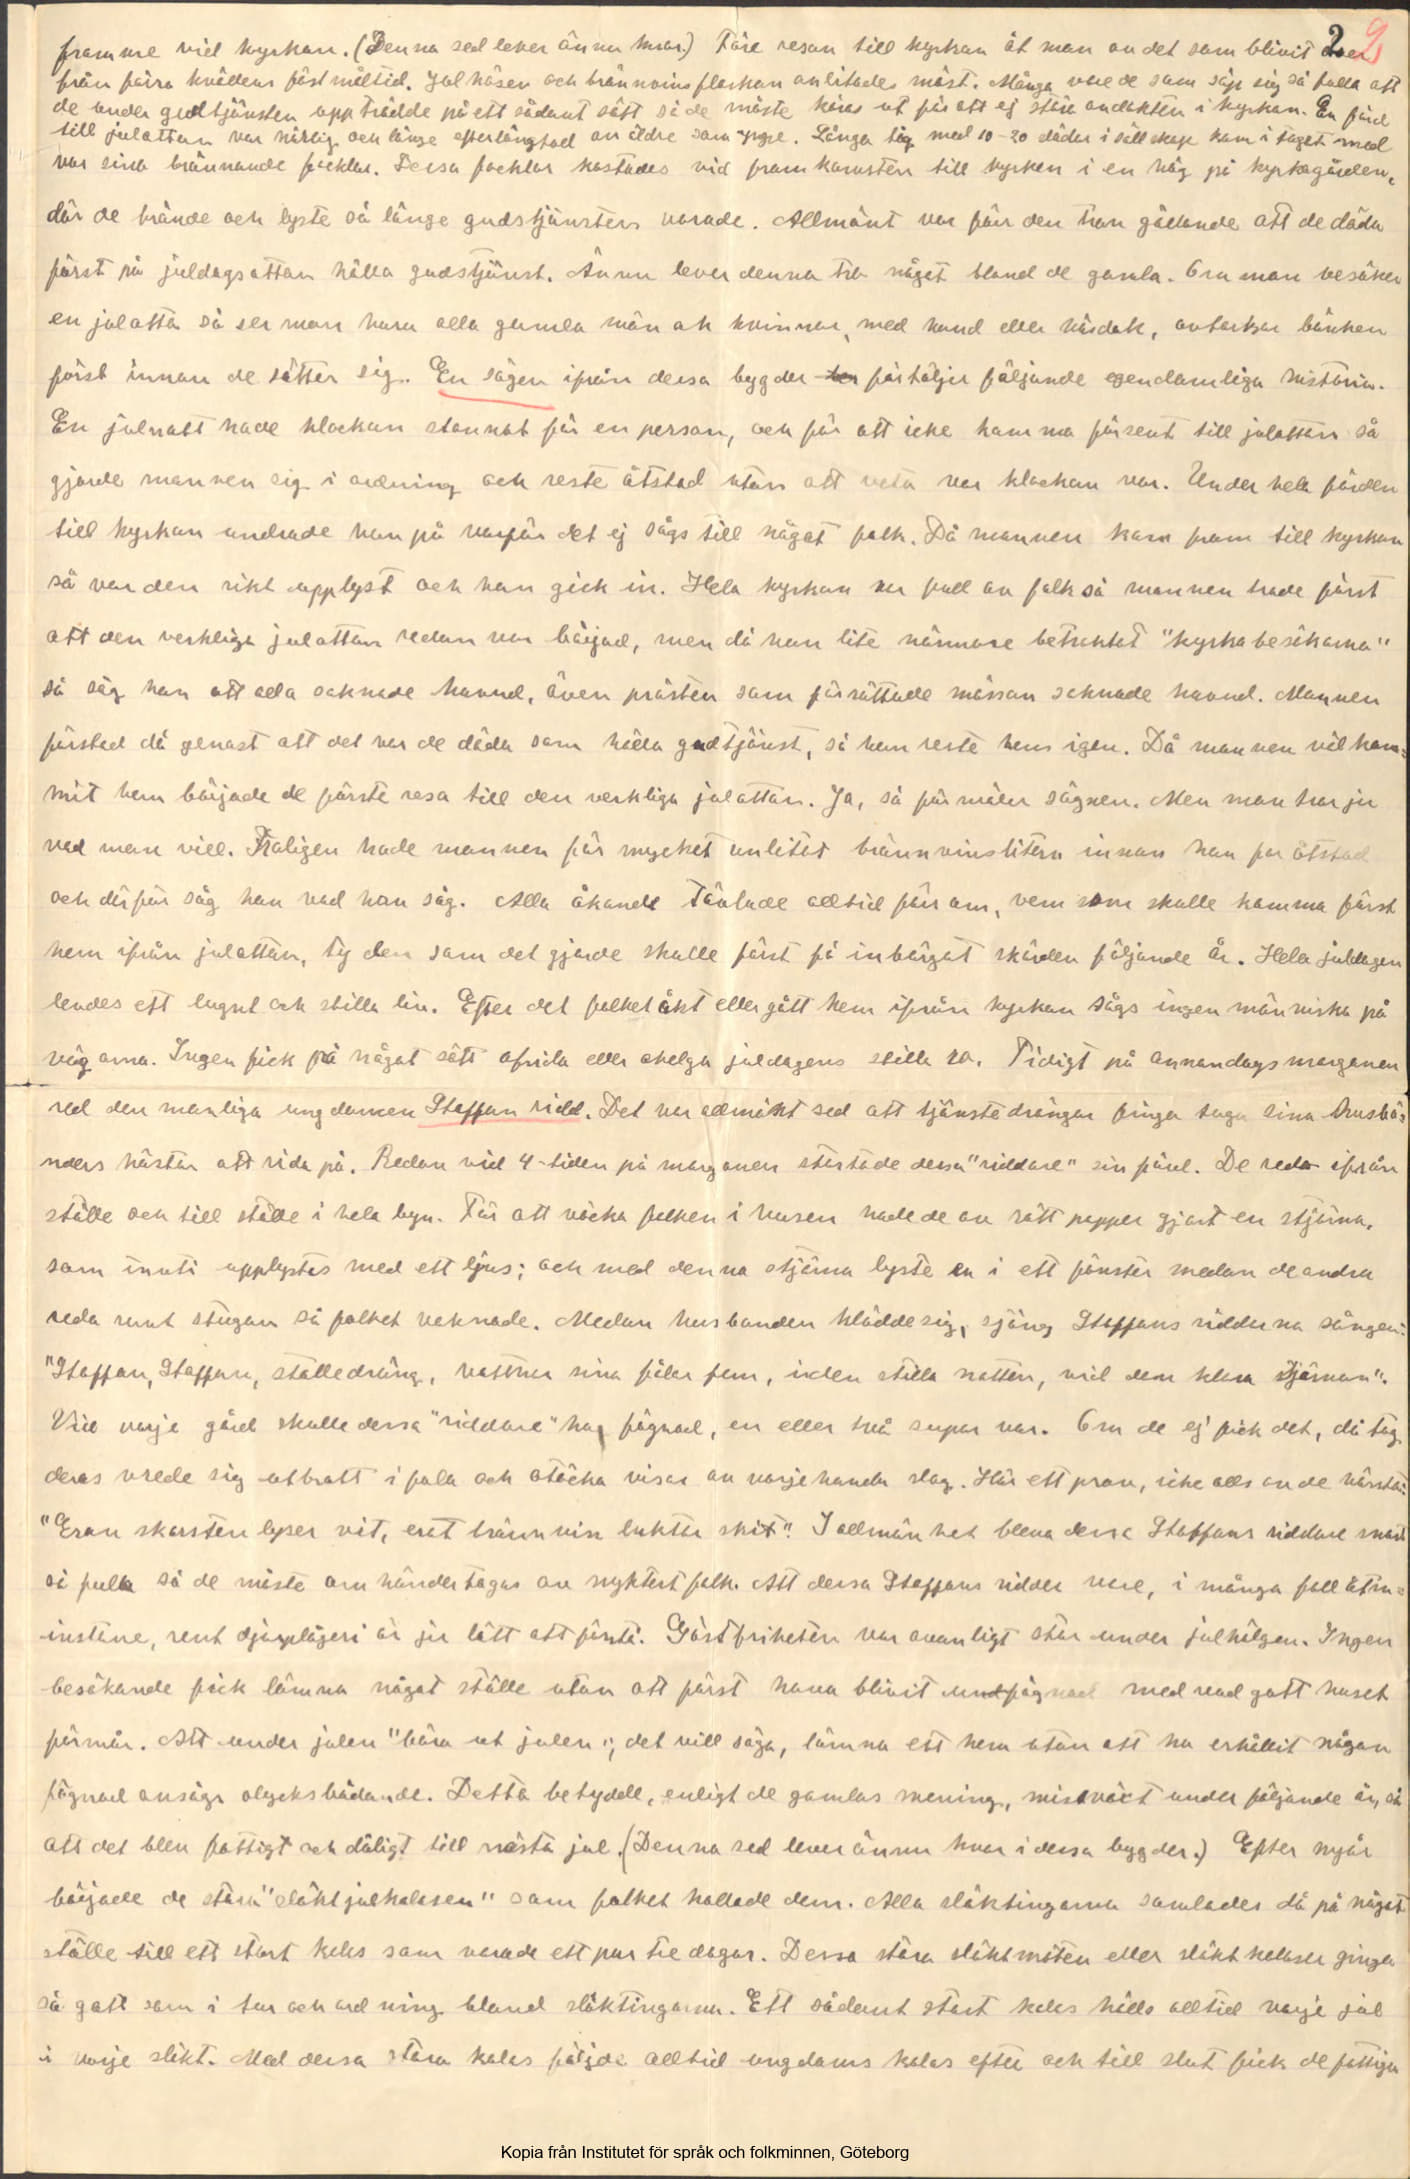 2 9
framme vid kyrkan. (Denna sed lever ännu kvar.) Före resan till kyrkan åt man av det som blivit över
från förra kvällens föst måltid. Julkösen och brännvinsflaskan anlitades mäst. Många vore de som söp sig så fulla att
de under gudtjänsten uppträdde på ett sådant sätt så de måste köras ut för att ej störa andakten i kyrkan. En färd
till julottan var härlig och länge efterlängtad av äldre som yngre. Långa tåg med 10-20 slädar i sällskap kom i taget med
var sina brännande facklar. Dessa facklor kastades vid framkomsten till kyrken i en hög på kyrkogården,
där de brände och lyste så länge gudstjänsten varade. Allmänt var förr den tron gällande att de döda
först på juldagsottan hålla gudstjänst. Ännu lever denna tro något bland de gamla. Om man besöker
en julotta så ser man huru alla gamla män ok kvinnor, med hand eller näsduk, avtorkar bänken
först innan de sätter sig. En sägen ifrån dessa bygder förtäljer följande egendomliga historia.
En julnatt hade klockan stannat för en person, och för att icke komma försent till julottan så
gjorde mannen sig i ordning och reste åstad utan att veta var klockan var. Under hela färden
till kyrkan undrade han på varför det ej sågs till något folk. Då mannen kom fram till kyrkan
så var den rikt upplyst och han gick in. Hela kyrkan var full av folk så mannen trode först
att den verkliga julottan redan var börjad, men då han lite närmare betraktat "kyrkobesökarna"
så såg han att alla saknade huvud, även prästen som förrättade mässan saknade huvud. Mannen
förstod då genast att det var de döda som hålla gudtjänst, så han reste hem igen. Då mannen väl kom=
mit hem började de förste resa till den verkliga julottan. Ja, så förmäler sägnen. Men man tror ju
vad man vill. Troligen hade mannen för mycket anlitat brännvinslitern innan han for åstad
och därför såg han vad han såg. Alla åkande tävlade alltid förr om, vem som skulle komma först
hem ifrån julottan, ty den som det gjorde skulle först få inbärgat skörden följande år. Hela juldagen
levdes ett lugnt och stilla liv. Efter det folket åkt eller gått hem ifrån kyrkan sågs ingen människa på
vägarna. Ingen fick på något sätt ofrida eller ohelga juldagens stilla ro. Tidigt på annandagsmorgonen
red den manliga ungdomen Staffan ridd. Det var allmänt sed att tjänstedrängar finga taga sina husbö=
nders hästar att rida på. Redan vid 4-tiden på morgonen startade dessa "riddare" sin färd. De reda ifrån
ställe och till ställe i hela byn. För att väcka folken i husen hade de av rött papper gjort en stjärna,
som inuti upplystes med ett ljus; och med denna stjärna lyste en i ett fönster medan de andra
reda runt stugan så folket vaknade. Medan husbonden klädde sig, sjöng Staffans riddarna sången:
"Staffan, Staffan, stalledräng, vattnar sina fålar fem, i den stilla natten, vid den klara stjärnan".
Vid varje gård skulle dessa "riddare" ha fägnad, en eller två supar var. Om de ej fick det, då tog
deras vrede sig utbrott i fula och stöcka visor av varjehanda slag. Här ett prov, icke alls av de värsta:
"Eran skorsten lyser vit, erat brännvin luktar skit". I allmänhet bleva dessa Staffans riddare snart
så fulla så de måste omhändertagas av nyktert folk. Att dessa Staffans ridder vore, i många fall åtm=
instone, rent djurplågeri är ju lätt att förstå. Gästfriheten var ovanligt stor under julhälgen. Ingen
besökande fick lämna något ställe utan att först hava blivit undfägnad med vad gott huset
förmår. Att under julen "bära ut julen", det vill säga, lämna ett hem utan att ha erhållit någon
fägnad ansågs olycksbådande. Detta betydde, enligt de gamlas mening, missväxt under följande år, så
att det blev fattigt och dåligt till nästa jul. (Denna sed lever ännu kvar i dessa bygder.) Efter nyår
började de stora "släktjulkalasen" som folket kallade dem. Alla släktingarna samlades då på något
ställe till ett stort kalas som varade ett par tre dagar. Dessa stora släktmöten eller släktkalaser ginga
så gott som i tur och ordning bland släktingarna. Ett sådant stort kalas hölls alltid varje jul
i varje släkt. Med dessa stora kalas följde alltid ungdoms kalas efter och till slut fick de fattiga
Kopia från Institutet för språk och folkminnen, Göteborg